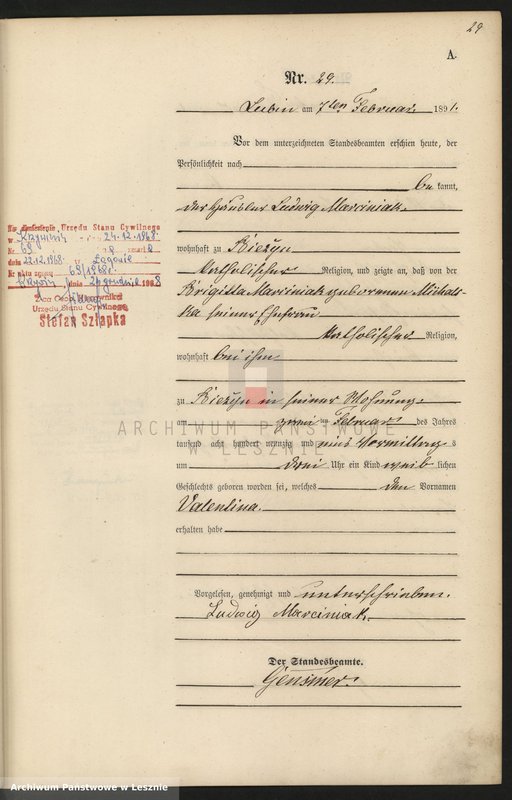 29
A.
Nr. 29.
Lubin am 7ten Februar 1891.
Vor dem unterzeichneten Standesbeamten erschien heute, der
Persönlichkeit nach
bekannt,
der Häusler Ludwig Marciniak
wohnhaft zu Bieżyn
katholischer Religion, und zeigte an, daß von der
Brigitta Marciniak geborenen Michals-
ka seiner Ehefrau
katholischer Religion,
wohnhaft bei ihm
zu Bieżyn in seiner Wohnung
am zwei ten Februar des Jahres
tausend acht hundert neunzig und eins Vormittags
um drei Uhr ein Kind weiblichen
Geschlechts geboren worden sei, welches den Vornamen
Valentina.
erhalten habe
Vorgelesen, genehmigt und unterschrieben.
Ludwig Marciniak.
Der Standesbeamte.
Gensmer.
Urzędu Stanu Cywilnego
w Krzywiń 24.12.1968
Nr. 68 zmarł a
dnia 22.12.1968 w Łagowie
Nr aktu zgonu 68/1968
dnia 24 grudnia 1968
Urzędu Stanu Cywilnego
Stefan Szłapka
ARCHIWUM PAŃSTWOWE
W LESZNIE
Archiwum Państwowe w Lesznie